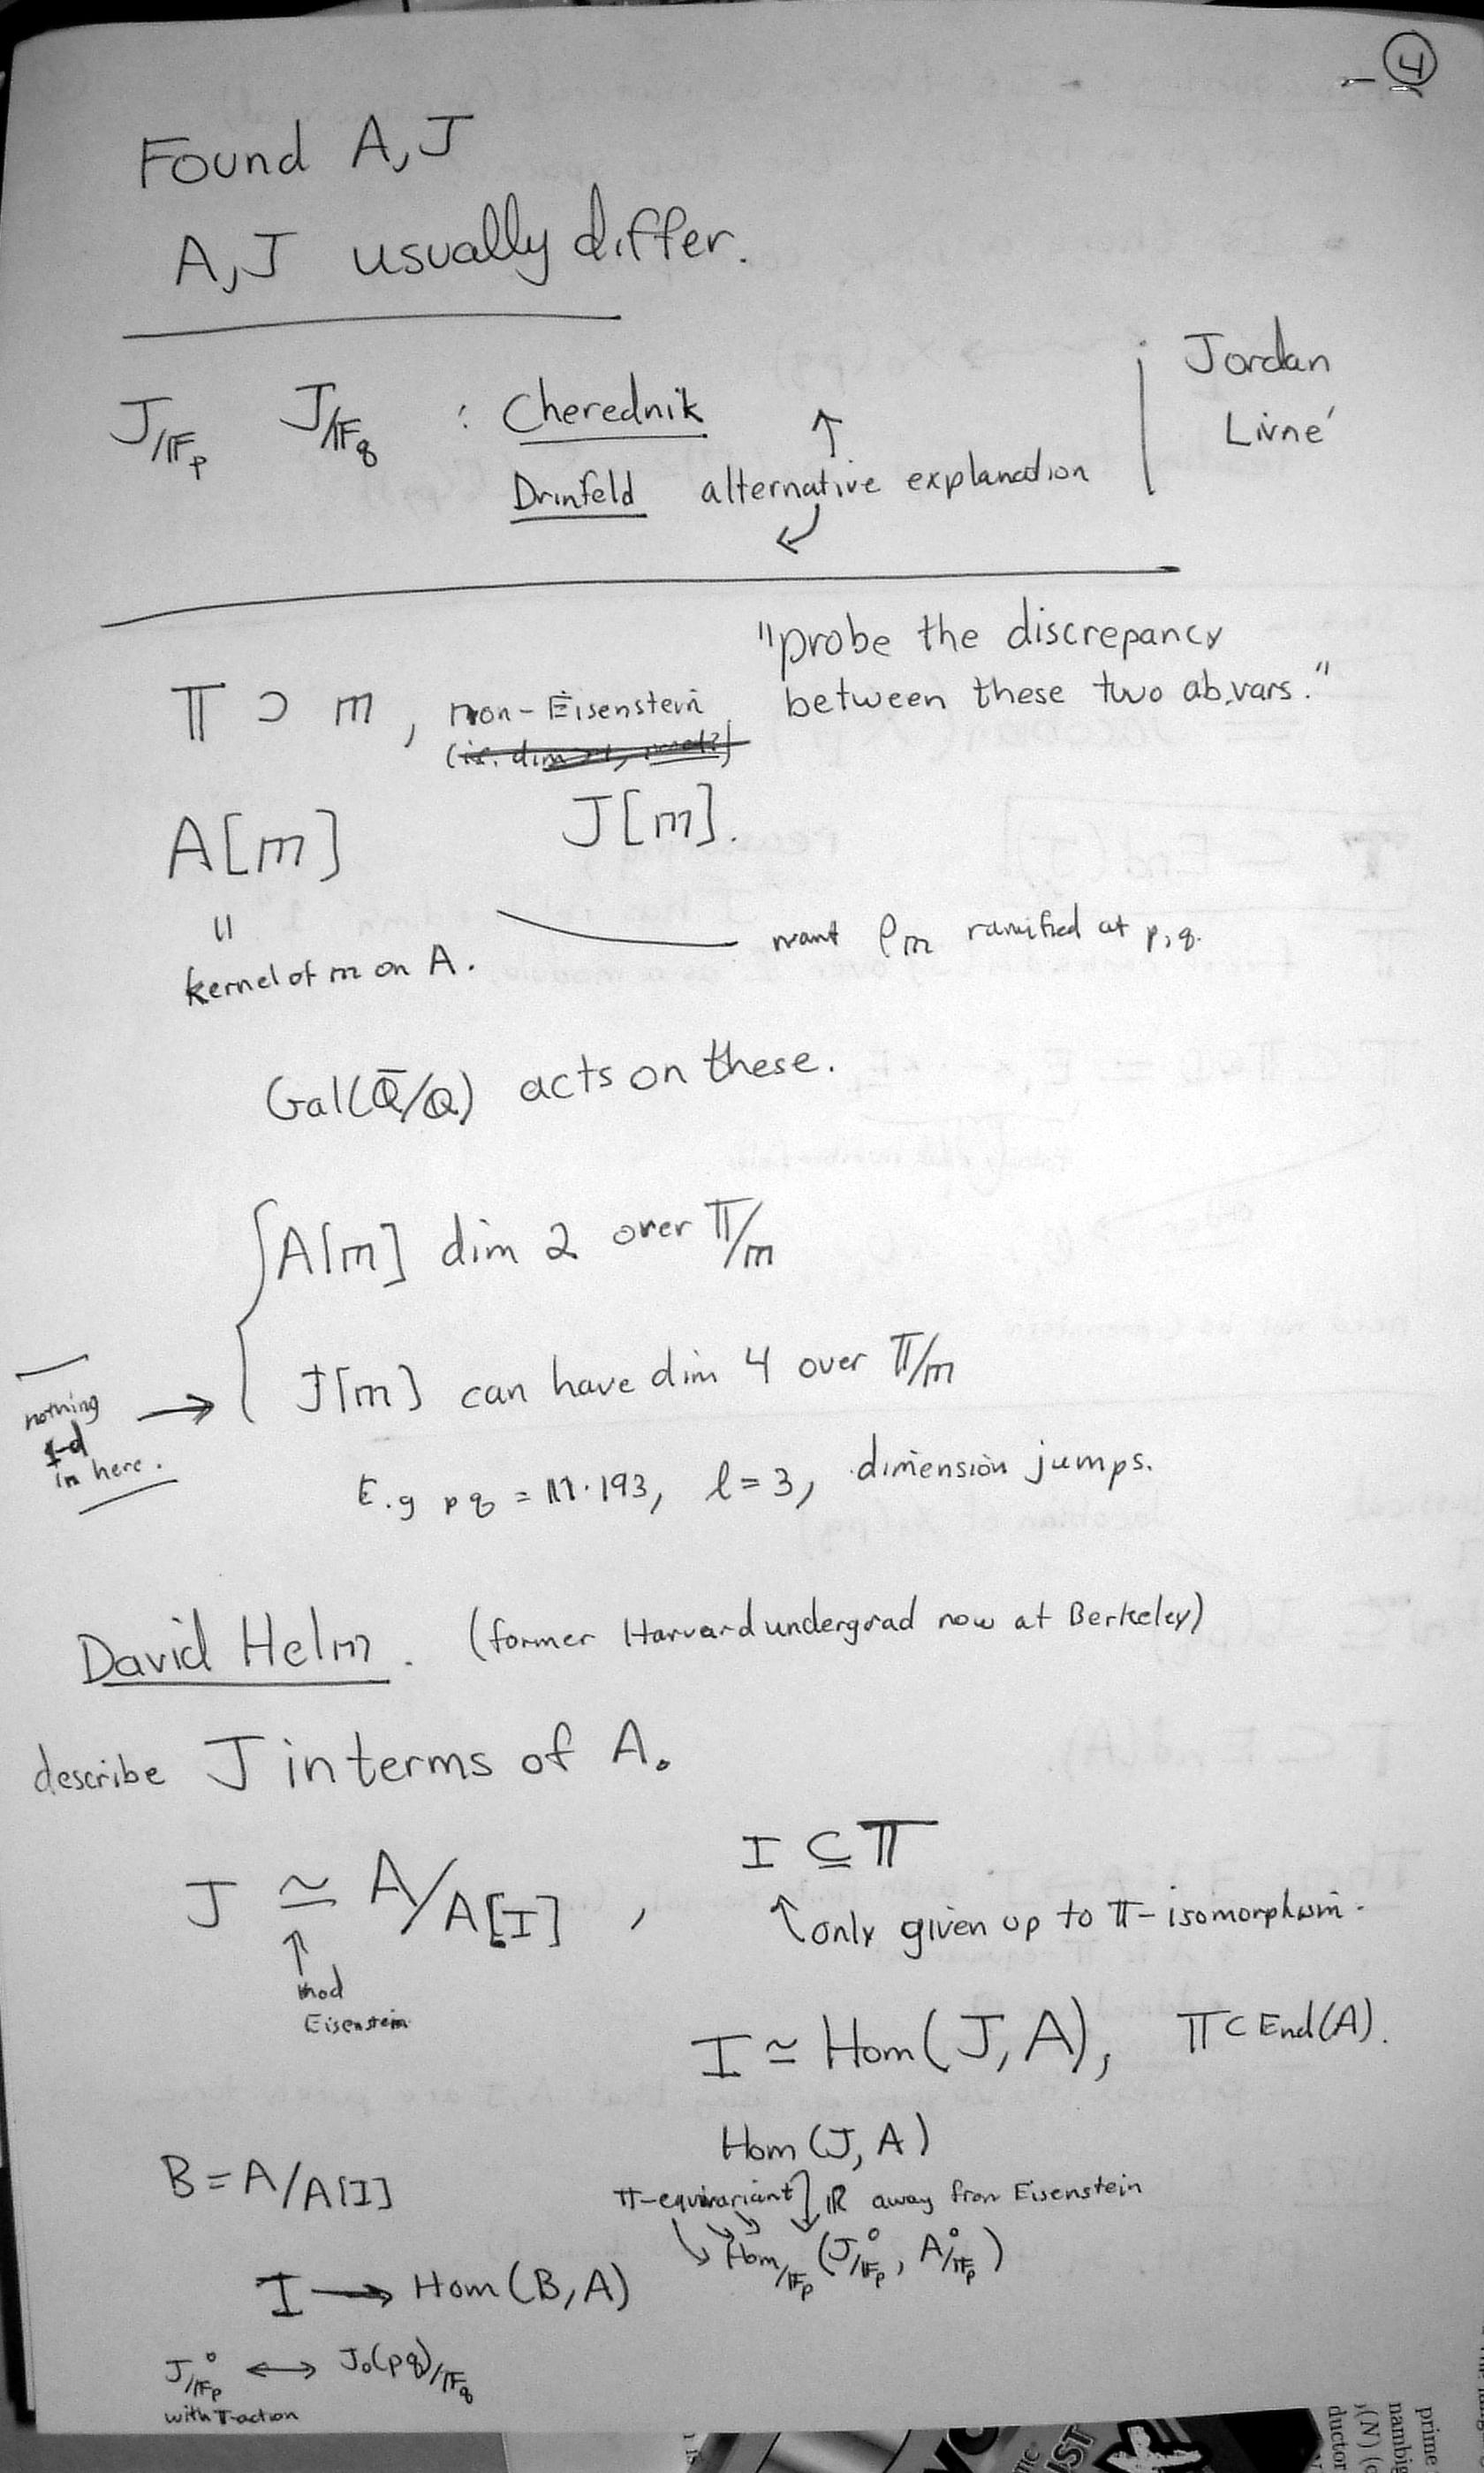 4
Found A, J
A, J usually differ.
J/𝔽p J/𝔽q : Cherednik
Drinfeld
↑ alternative explanation ↙
Jordan
Livné
"probe the discrepancy
between these two ab. vars."
𝕋 ⊃ m, non-Eisenstein
A[m] J[m].
"
kernel of m on A.
want ρm ramified at p, q.
Gal(Q̄/Q) acts on these.
A[m] dim 2 over 𝕋/m
J[m] can have dim 4 over 𝕋/m
nothing
1-d
in here. →
E.g pq = 11·193, l=3, dimension jumps.
David Helm. (former Harvard undergrad now at Berkeley)
describe J in terms of A.
J ≃ A/A[I] , I ⊆ 𝕋
↑
mod
Eisenstein
↑ only given up to 𝕋-isomorphism.
I ≃ Hom(J, A), 𝕋 ⊂ End(A).
Hom(J, A)
𝕋-equivariant ↓ IR away from Eisenstein
Hom/𝔽p (J°/𝔽p, A°/𝔽p)
B = A/A[I]
I → Hom(B, A)
J°/𝔽p ↔ J₀(pq)/𝔽q
with T-action
prime
nambig
(N) (c
ductor